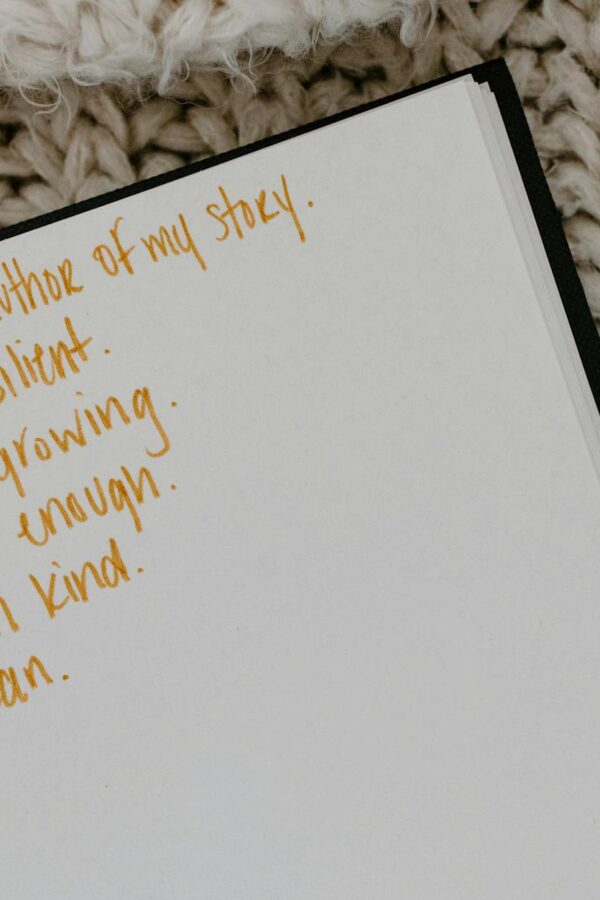 uthor of my story.
silient.
growing.
enough.
kind.
an.